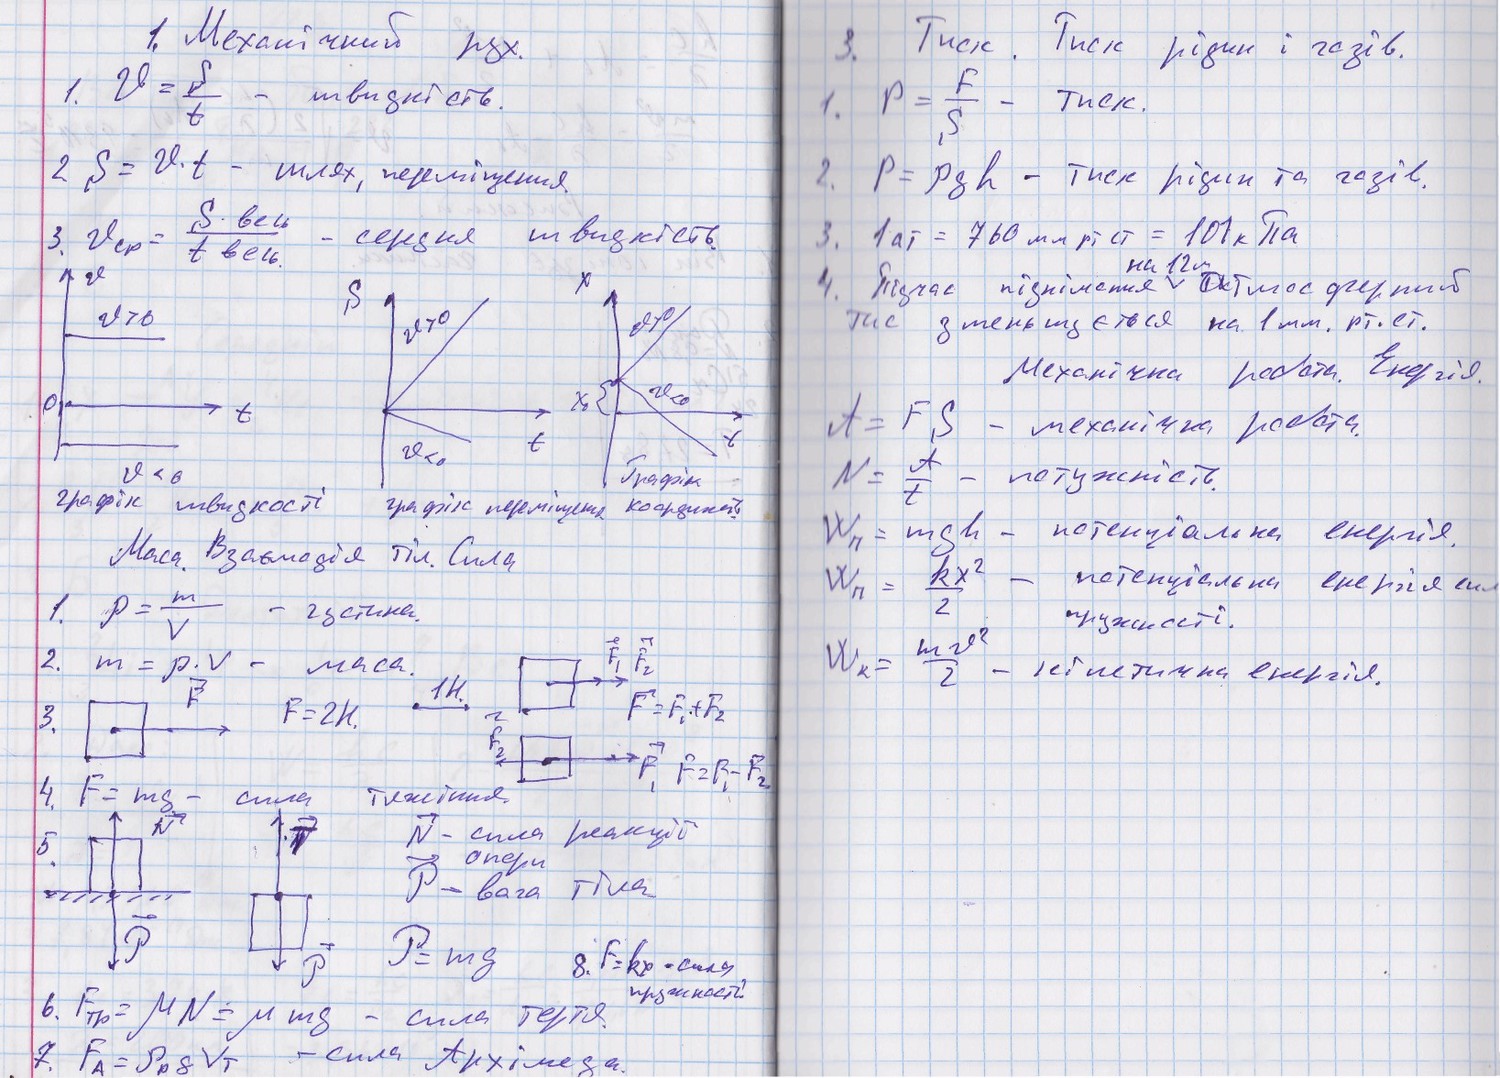 1. Механічний рух.
1. V = S/t – швидкість.
2 S = V·t – шлях, переміщення.
3. Vср = S весь / t весь. – середня швидкість.
V
V>0
0
t
V<0
графік швидкості
S
V>0
t
V<0
графік переміщення
X
V>0
X₀
V<0
t
Графік
координат
Маса. Взаємодія тіл. Сила
1. ρ = m/V – густина.
2. m = ρ·V – маса.
F₁ F₂
F = F₁ + F₂
3. F F = 2Н. 1Н.
F₂ F₁ F = F₁ – F₂
4. F = mg – сила тяжіння.
5. N
P
P
N – сила реакції
опори
P – вага тіла
P = mg
8. F = kx – сила
пружності
6. Fтр = μN = μmg – сила тертя.
7. FА = ρр g Vт – сила Архімеда.
3. Тиск. Тиск рідин і газів.
1. P = F/S – тиск.
2. P = ρgh – тиск рідин та газів.
3. 1ат = 760 мм рт ст = 101кПа
на 12м
4. Підчас піднімання V Атмосферний
тис зменьшується на 1 мм. рт. ст.
Механічна работа. Енергія.
A = FS – механічна работа.
N = A/t – потужність.
Wп = mgh – потенціальна енергія.
Wп = kx²/2 – потенціальна енергія сил
пружності.
Wк = mV²/2 – кінетична енергія.